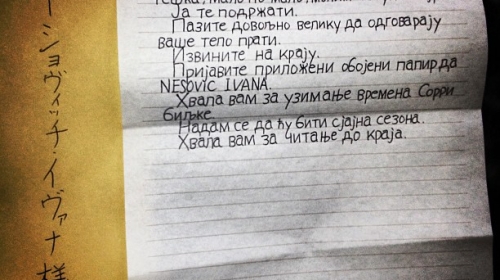 ーショヴィッチ・イヴァナ様
мало по мало
Ја те подржати.
Пазите довољно велику да одговарају
ваше тело прати.
Извините на крају.
Пријавите приложени обојени папир да
NESOVIC IVANA.
Хвала вам за узимање времена Сорри
биљке.
Надам се да ћу бити сјајна сезона.
Хвала вам за читање до краја.